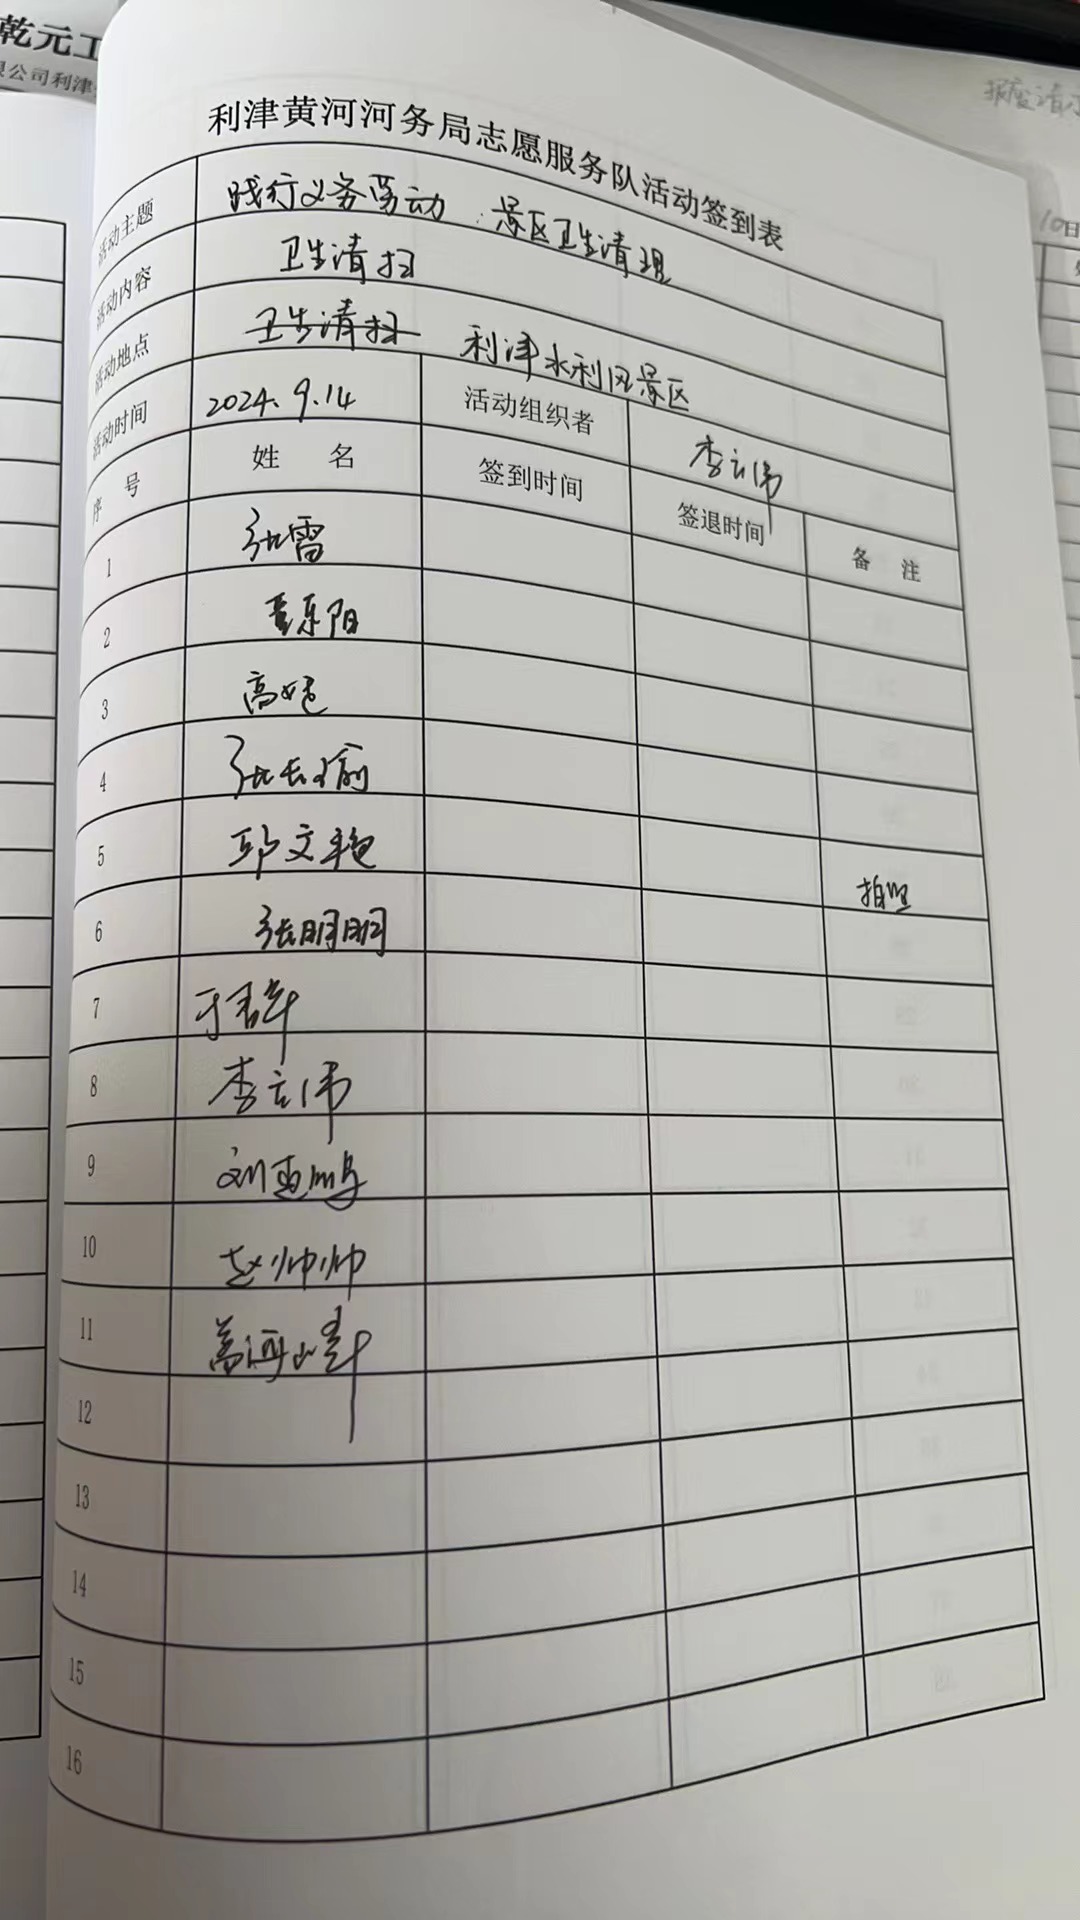 乾元工
限公司利津
利津黄河河务局志愿服务队活动签到表
活动主题 践行义务劳动：景区卫生清理
活动内容 卫生清扫
活动地点 卫生清扫 利津水利风景区
活动时间 2024.9.14 活动组织者 李立伟
序 号 姓 名 签到时间 签退时间 备 注
1 张雷
2 董乐阳
3 高娓
4 张长瑜
5 邱文艳 拍照
6 张明明
7 于君华
8 李立伟
9 刘亚鹏
10 赵帅帅
11 盖河峰
12
13
14
15
16
10日